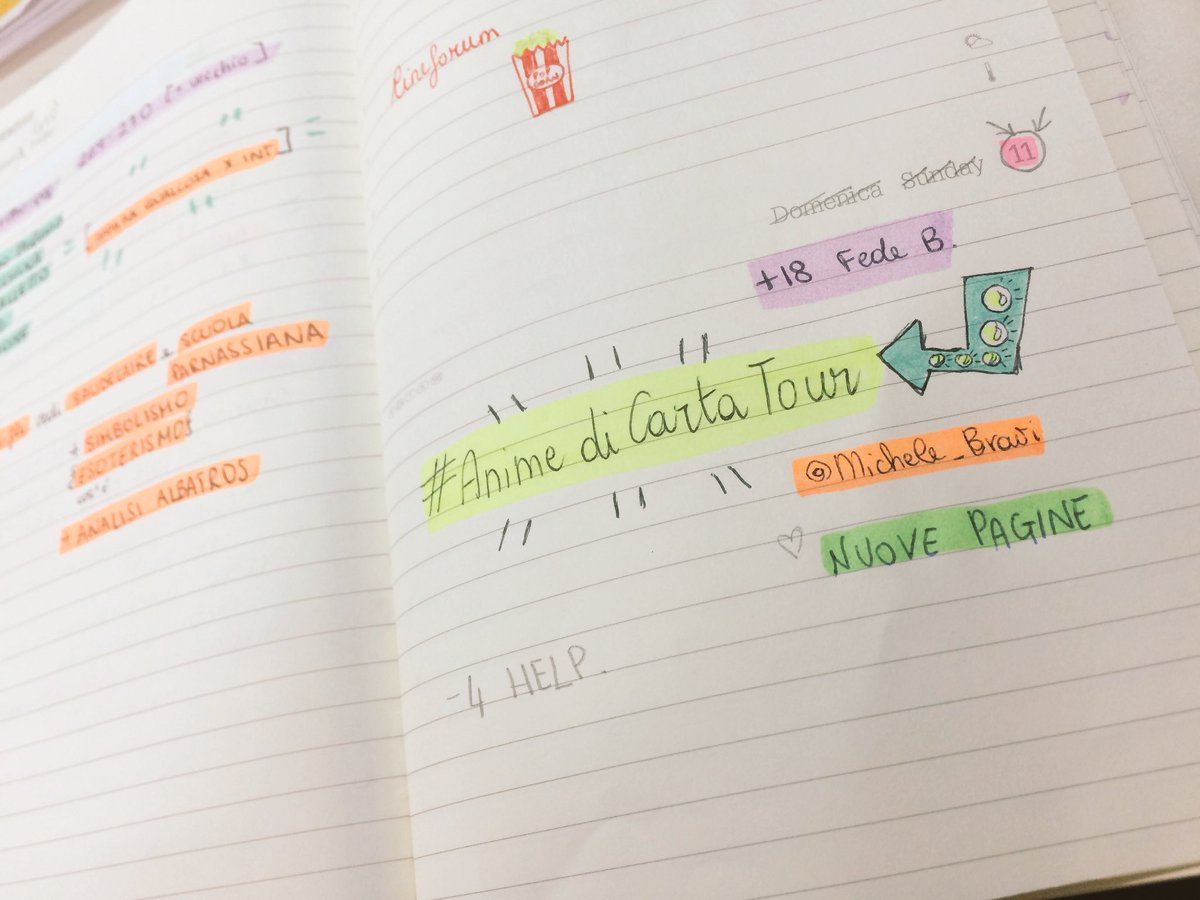 [+ vecchio]
X INT.]
BAUDELAIRE e SCUOLA
PARNASSIANA
+ SIMBOLISMO
ESOTERISMO
+ ANALISI ALBATROS
Cineforum
POP
CORN
11
Domenica Sunday
+18 Fede B.
#Anime di Carta Tour
@Michele_Bravi
NUOVE PAGINE
-4 HELP.